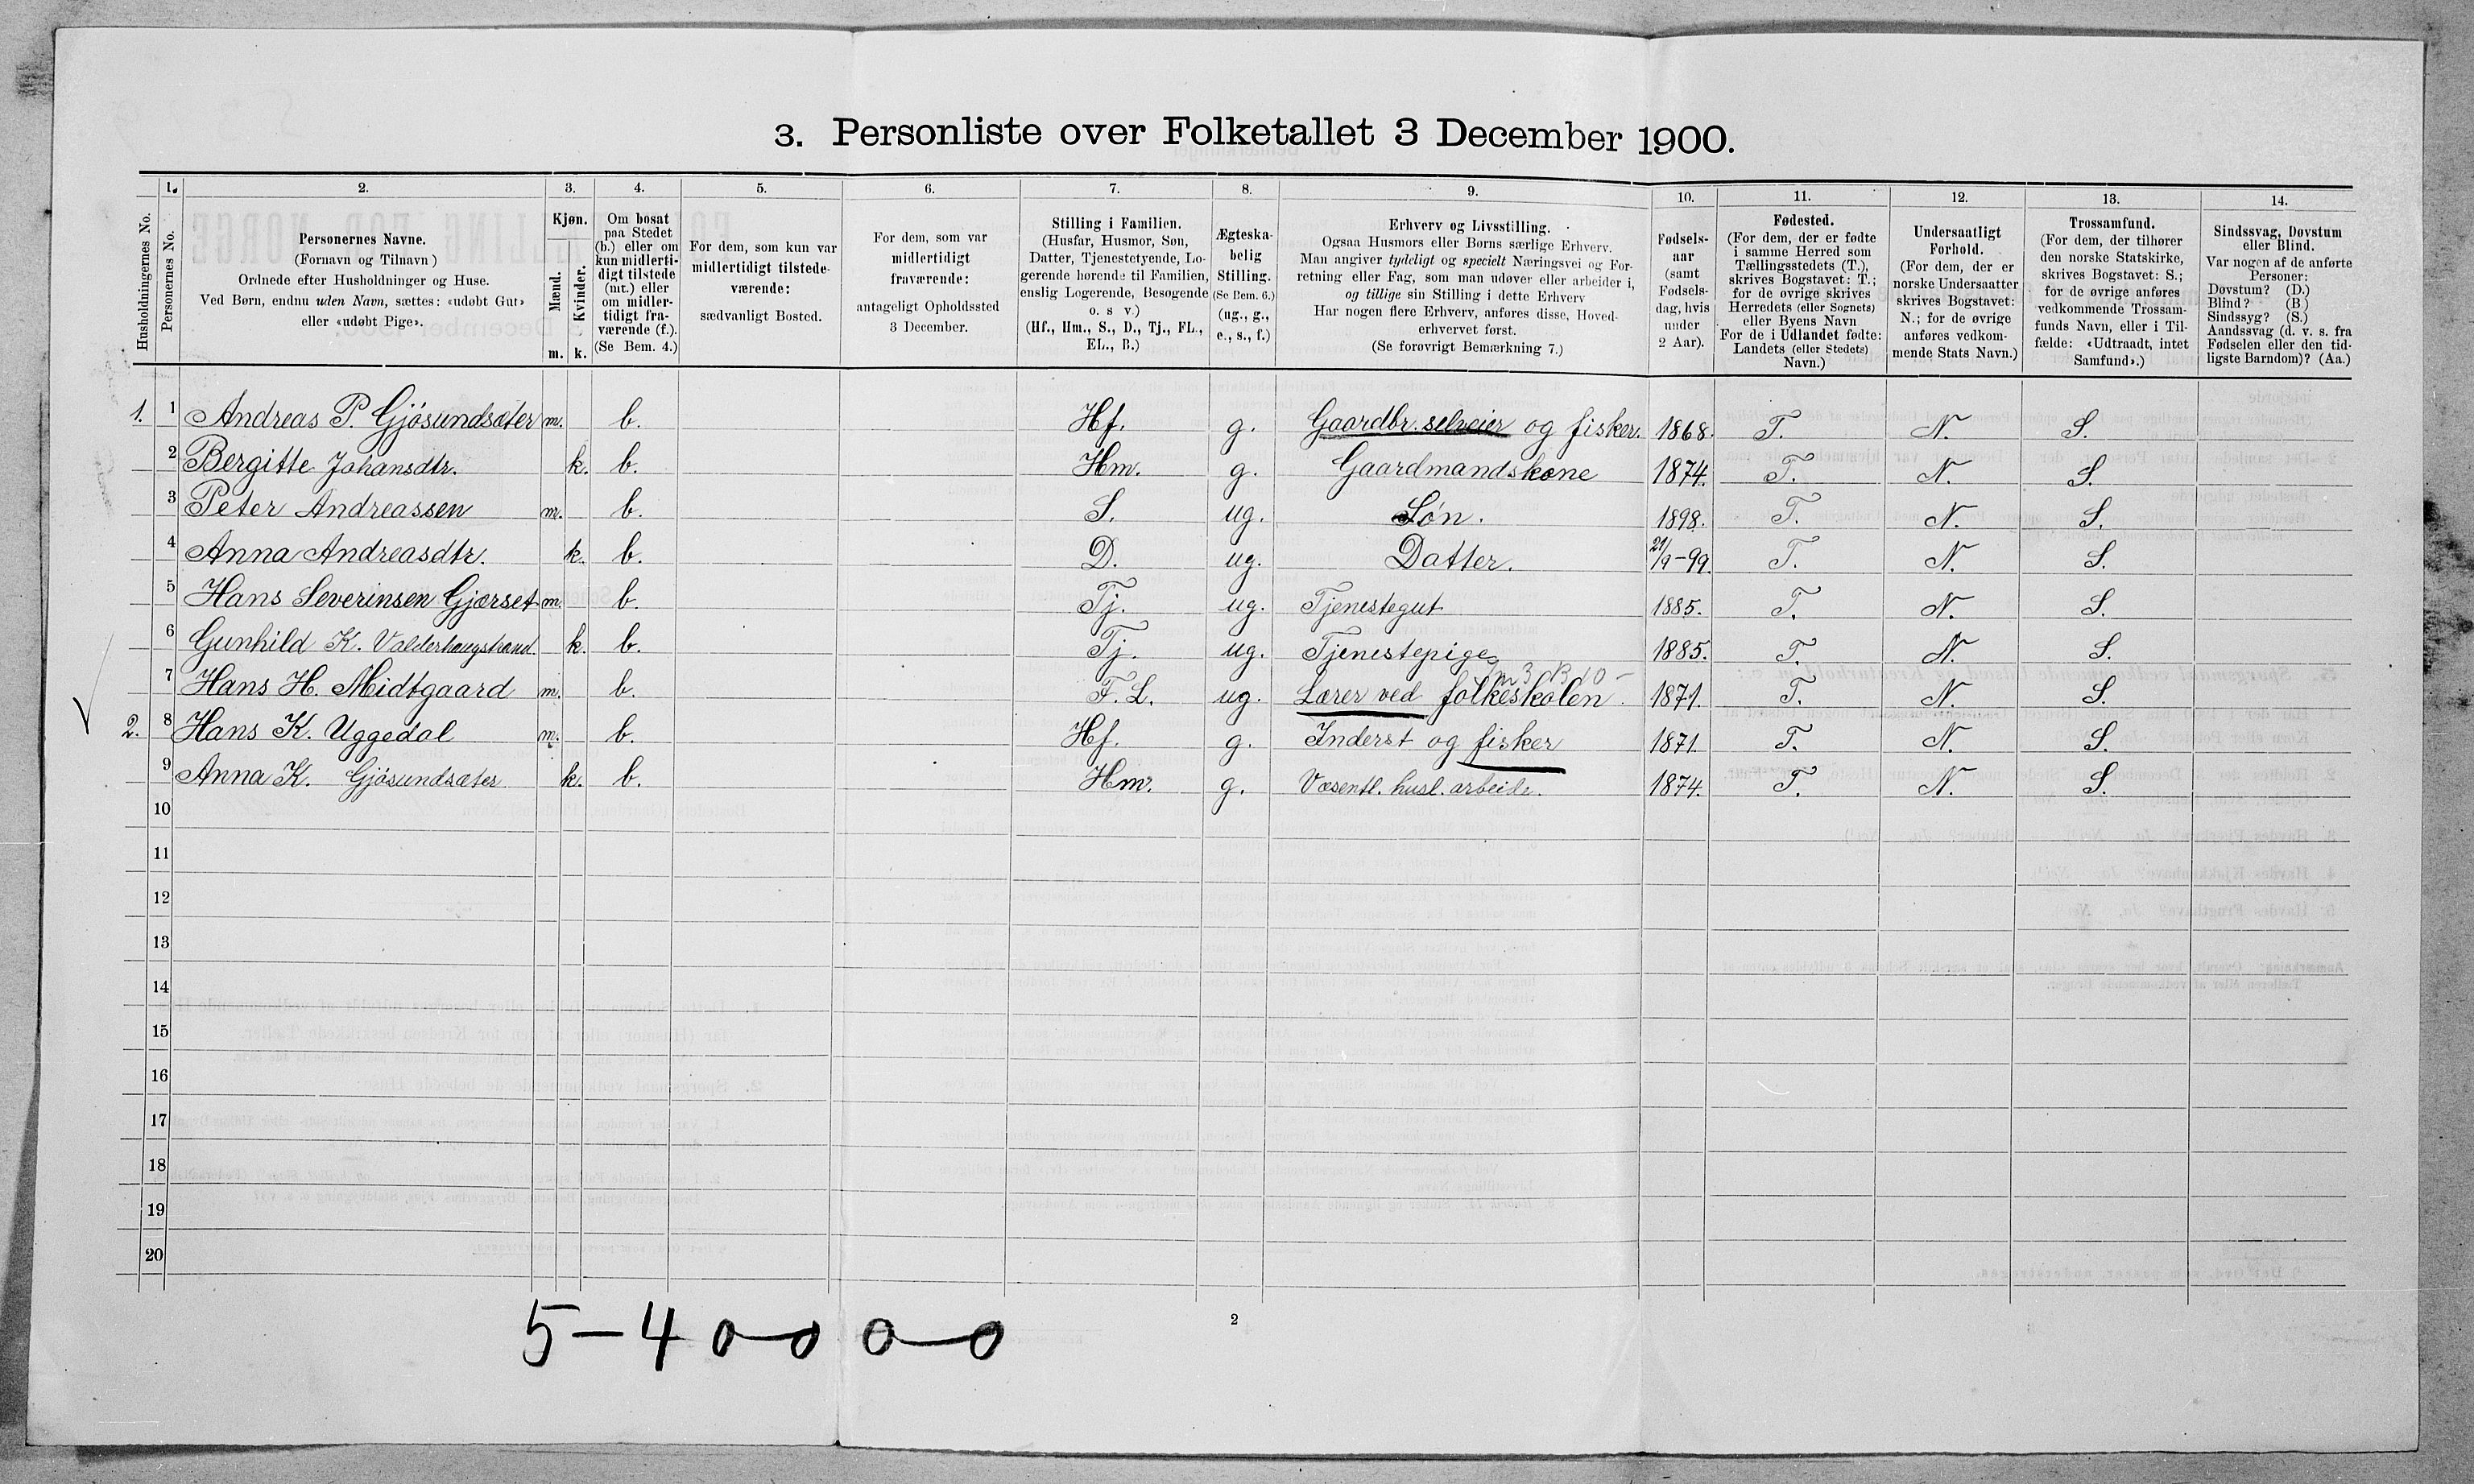 3. Personliste over Folketallet 3 December 1900.
Husholdningernes No.
1.
Personernes No.
2.
Personernes Navne.
(Fornavn og Tilnavn)
Ordnede efter Husholdninger og Huse.
Ved Børn, endnu uden Navn, sættes: «udøbt Gut»
eller «udøbt Pige».
3.
Kjøn.
Mænd.
Kvinder.
m. k.
4.
Om bosat
paa Stedet
(b.) eller om
kun midlerti-
digt tilstede
(mt.) eller
om midler-
tidigt fra-
værende (f.).
(Se Bem. 4.)
5.
For dem, som kun var
midlertidigt tilstede-
værende:
sædvanligt Bosted.
6.
For dem, som var
midlertidigt
fraværende:
antageligt Opholdssted
3 December.
7.
Stilling i Familien.
(Husfar, Husmor, Søn,
Datter, Tjenestetyende, Lo-
gerende hørende til Familien,
enslig Logerende, Besøgende
o. s v.)
(Hf., Hm., S., D., Tj., FL.,
EL., B.)
8.
Ægteska-
belig
Stilling.
(Se Bem. 6.)
(ug., g.,
e., s., f.)
9.
Erhverv og Livsstilling.
Ogsaa Husmors eller Børns særlige Erhverv.
Man angiver tydeligt og specielt Næringsvei og For-
retning eller Fag, som man udøver eller arbeider i,
og tillige sin Stilling i dette Erhverv
Har nogen flere Erhverv, anføres disse, Hoved-
erhvervet først.
(Se forøvrigt Bemærkning 7.)
10.
Fødsels-
aar
(samt
Fødsels-
dag, hvis
under
2 Aar).
11.
Fødested.
(For dem, der er fødte
i samme Herred som
Tællingsstedets (T.),
skrives Bogstavet: T.;
for de øvrige skrives
Herredets (eller Sognets)
eller Byens Navn
For de i Udlandet fødte:
Landets (eller Stedets)
Navn.)
12.
Undersaatligt
Forhold.
(For dem, der er
norske Undersaatter
skrives Bogstavet:
N.; for de øvrige
anføres vedkom-
mende Stats Navn.)
13.
Trossamfund.
(For dem, der tilhører
den norske Statskirke,
skrives Bogstavet: S.;
for de øvrige anføres
vedkommende Trossam-
funds Navn, eller i Til-
fælde: «Udtraadt, intet
Samfund».)
14.
Sindssvag, Døvstum
eller Blind.
Var nogen af de anførte
Personer:
Døvstum? (D.)
Blind? (B)
Sindssyg? (S.)
Aandssvag (d. v. s. fra
Fødselen eller den tid-
ligste Barndom)? (Aa.)
1. 1 Andreas P. Gjösundsæter m. b. Hf. g. Gaardbr. selveier og fisker. 1868. T. N. S.
2 Bergitte Johansdtr. k. b. Hm. g. Gaardmandskone 1874. T. N. S.
3 Peter Andreassen m. b. S. ug. Søn. 1898. T. N. S.
4 Anna Andreasdtr. k. b. D. ug. Datter. 21/9-99. T. N. S.
5 Hans Severinsen Gjørset m. b. Tj. ug. Tjenestegut 1885. T. N. S.
6 Gunhild K. Valderhaugstrand. k. b. Tj. ug. Tjenestepige 1885. T. N. S.
7 Hans H. Midtgaard m. b. F. L. ug. Lærer ved folkeskolen. 1871. T. N. S.
2. 8 Hans K. Uggedal m. b. Hf. g. Inderst og fisker 1871. T. N. S.
9 Anna K. Gjösundsæter k. b. Hm. g. Væsentl. husl. arbeide. 1874. T. N. S.
10
11
12
13
14
15
16
17
18
19
20
2
5-4 0-0 0-0